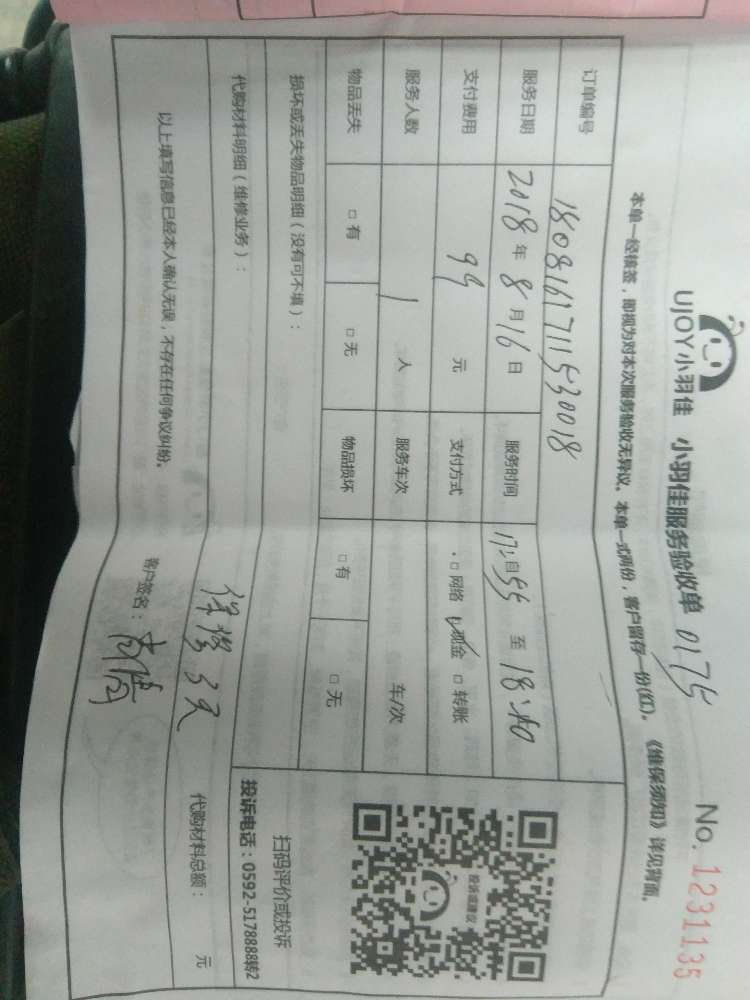 UJOY小羽佳 小羽佳服务验收单 0175
No. 1231135
本单一经核签，即视为对本次服务验收无异议。本单一式两份，客户留存一份(红)。《维保须知》详见背面。
订单编号 1808161711530018
服务日期 2018年8月16日 服务时间 17:55 至 18:40
支付费用 99 元 支付方式 □网络 ☑现金 □转账
服务人数 1 人 服务车次 车/次
物品丢失 □有 □无 物品损坏 □有 □无
损坏或丢失物品明细（没有可不填）：
投诉或建议
扫码评价或投诉
投诉电话：0592-5178888转2
代购材料明细（维修业务）：
保修3天
代购材料总额： 元
以上填写信息已经本人确认无误，不存在任何争议纠纷。
客户签名：